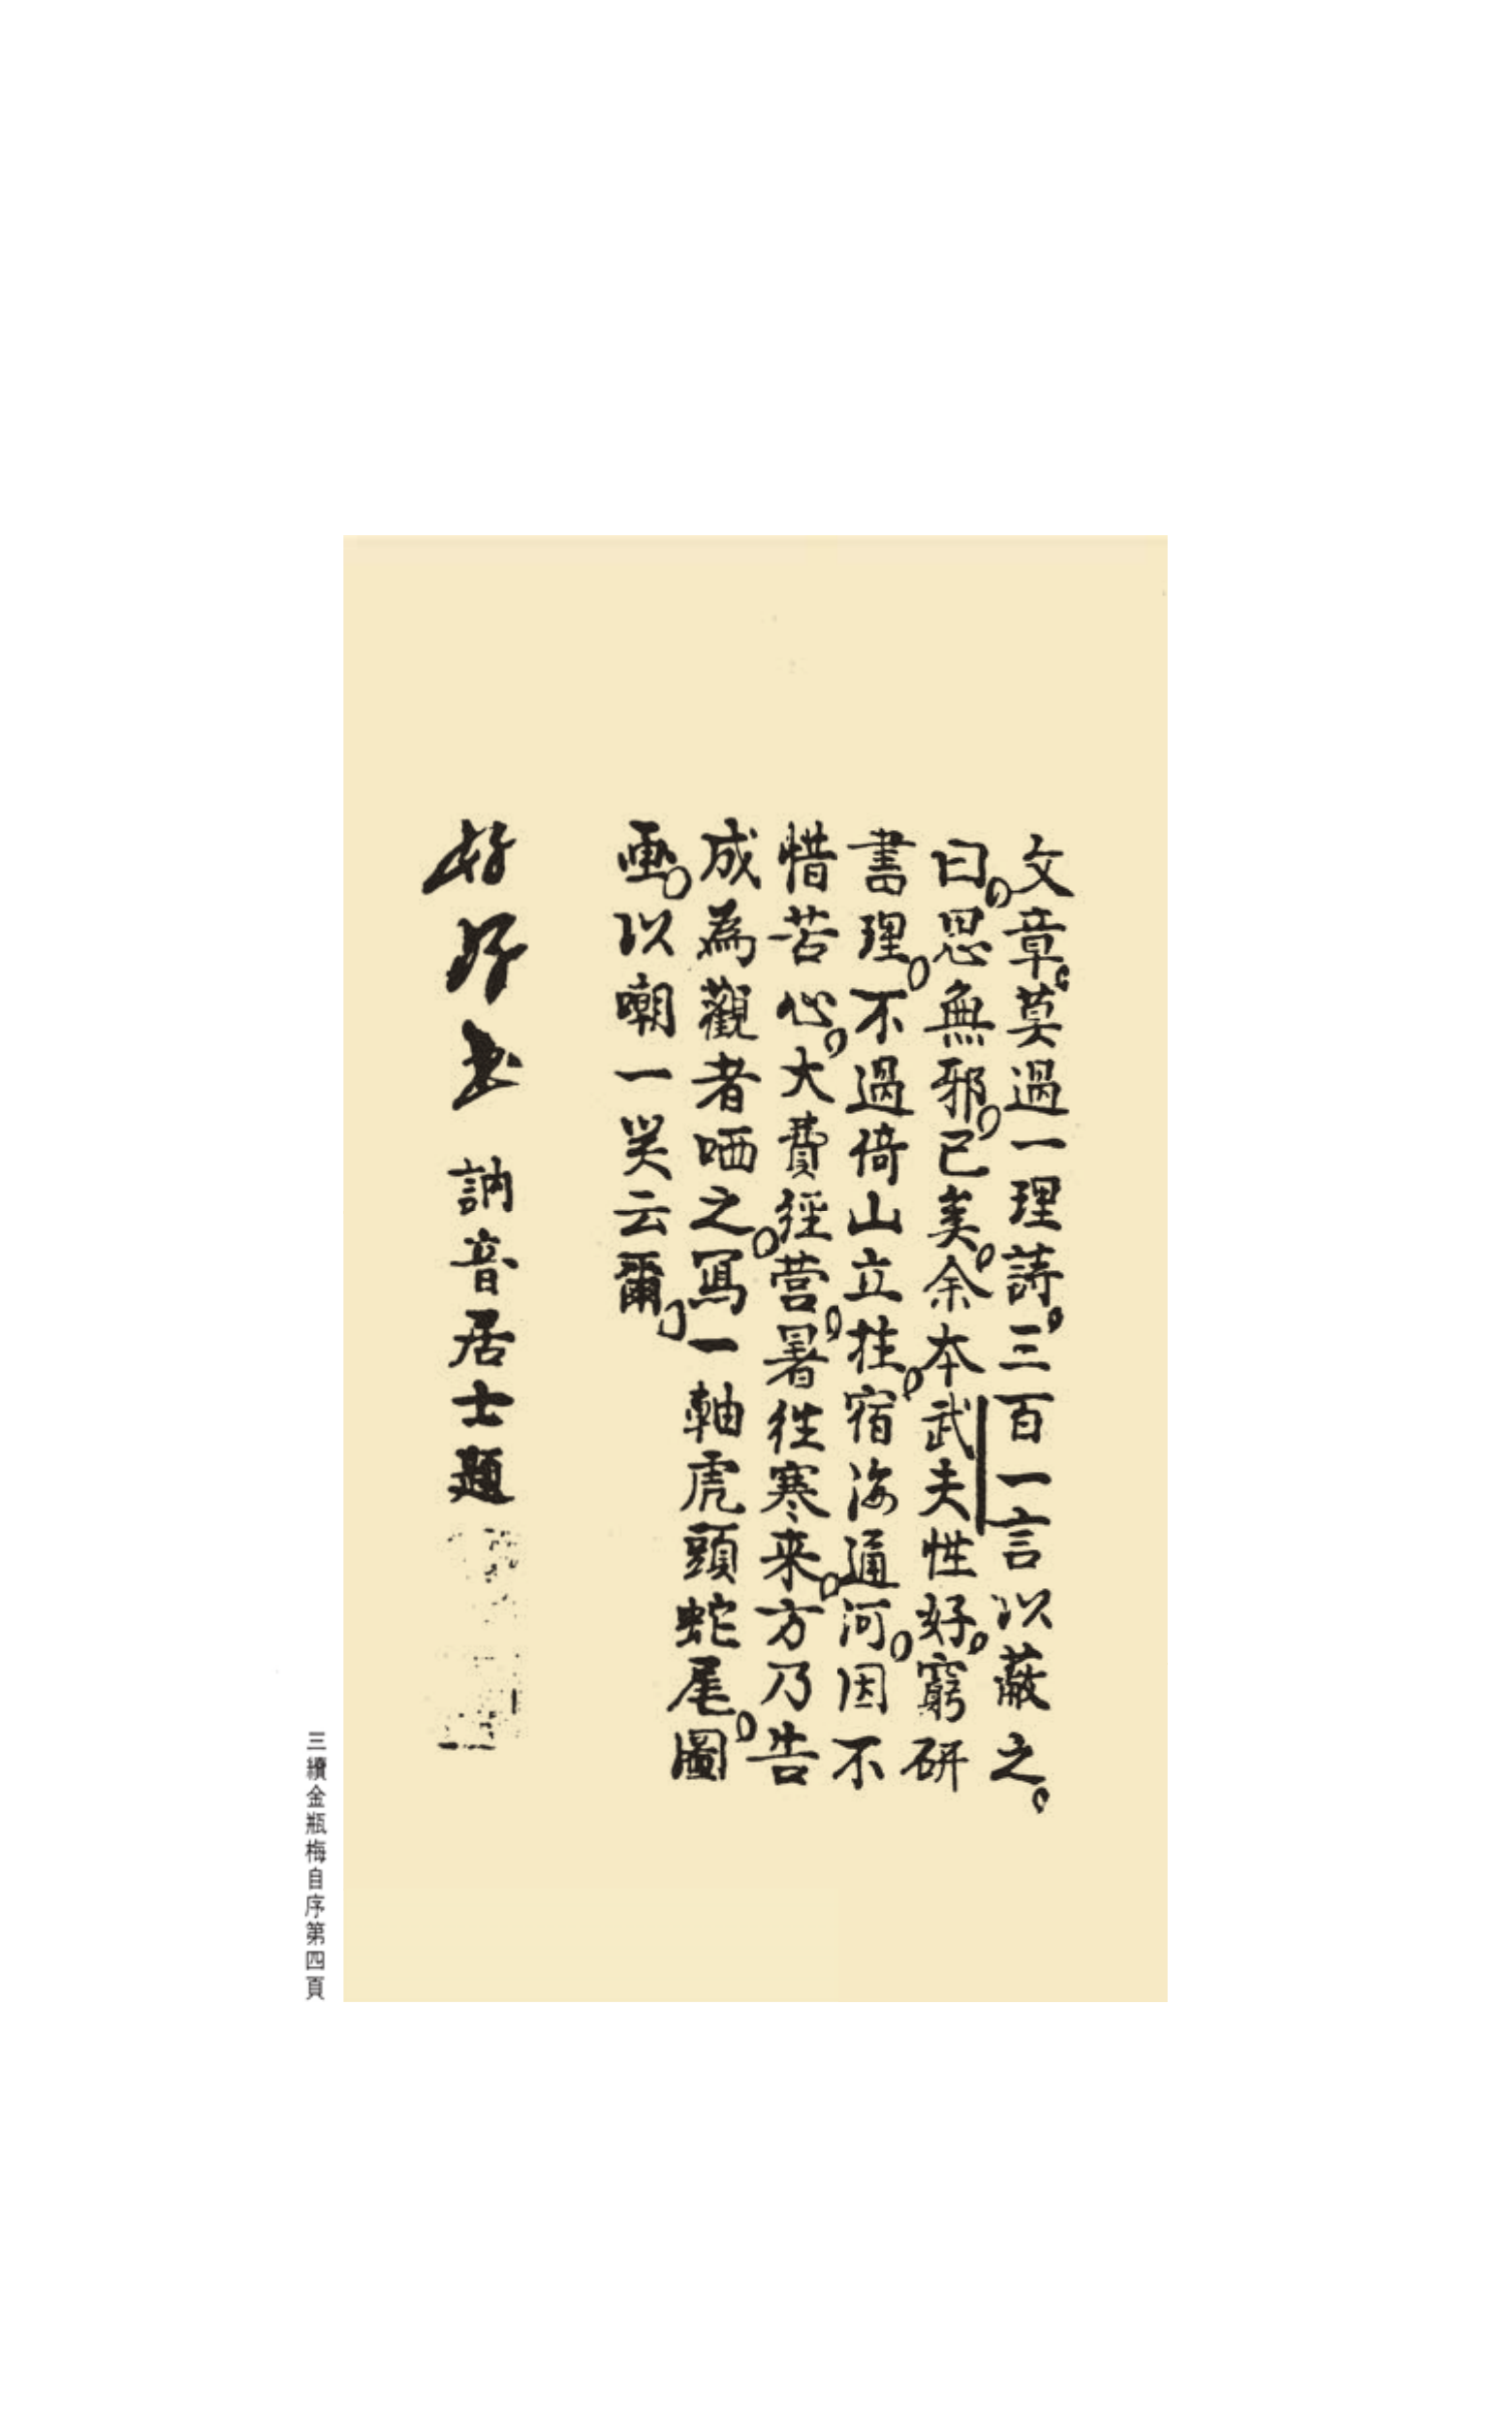 文章。莫過一理詩。三百一言以蔽之。
曰。思無邪。已矣。余本武夫性好。窮研
書理。不過倚山立柱。宿海通河。因不
惜苦心。大費經营。暑徃寒来。方乃告
成為觀者哂之。寫一軸虎頭蛇尾。圖
画。以嘲一笑云爾。
訥音居士題
三續金瓶梅自序第四頁